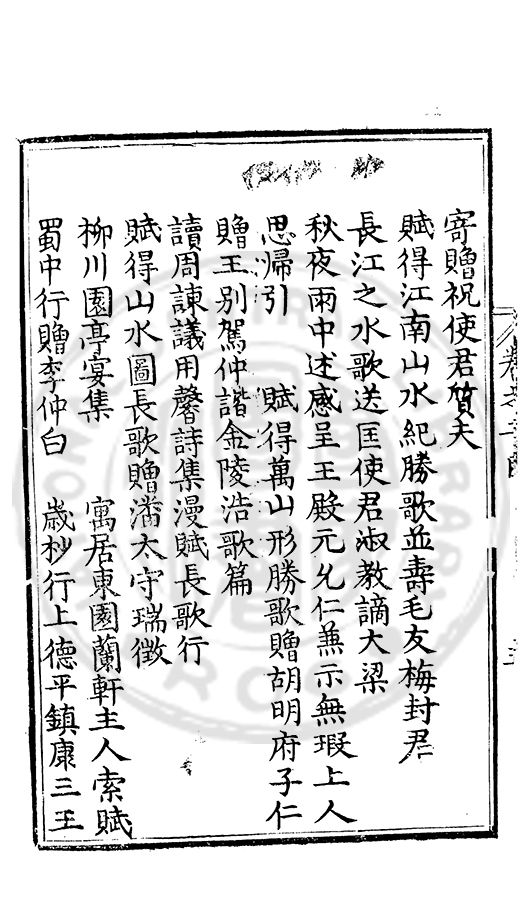 寄贈祝使君質夫
賦得江南山水紀勝歌並壽毛友梅封君
長江之水歌送匡使君淑教謫大梁
秋夜兩中述感呈王殿元允仁兼示無瑕上人
思歸引　賦得萬山形勝歌贈胡明府子仁
贈王別駕仲諧金陵浩歌篇
讀周諫議用馨詩集漫賦長歌行
賦得山水圖長歌贈潘太守瑞徵
柳川園亭宴集　寓居東園蘭軒主人索賦
蜀中行贈李仲白　歲杪行上德平鎮康三王